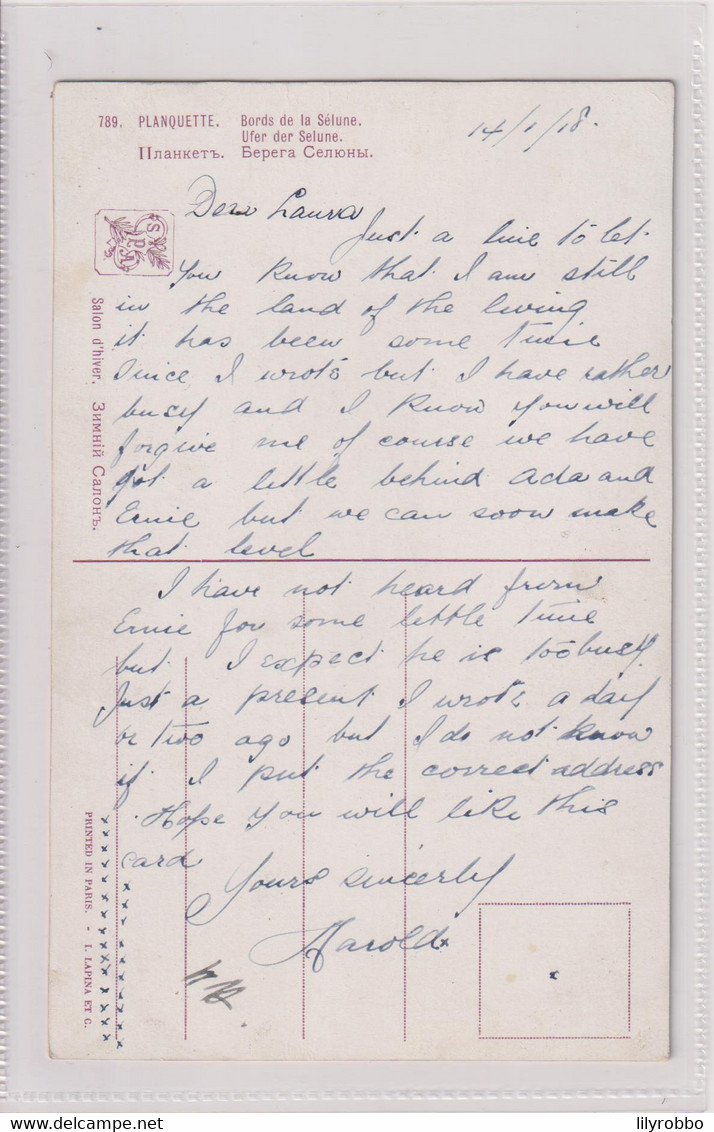 789. PLANQUETTE. Bords de la Sélune.
Ufer der Selune.
Планкетъ. Берега Селюны.
14/1/18.
Dear Laura
Just a line to let
you know that I am still
in the land of the living
it has been some time
since I wrote but I have rather
busy and I know you will
forgive me of course we have
got a little behind Ada and
Ernie but we can soon make
that level
I have not heard from
Ernie for some little time
but I expect he is too busy
Just a present I wrote a day
or two ago but I do not know
if I put the correct address
Hope you will like this
card
Yours sincerly
Harold x
Salon d'hiver. Зимній Салонъ.
PRINTED IN PARIS. - I. LAPINA ET C.
lilyrobbo